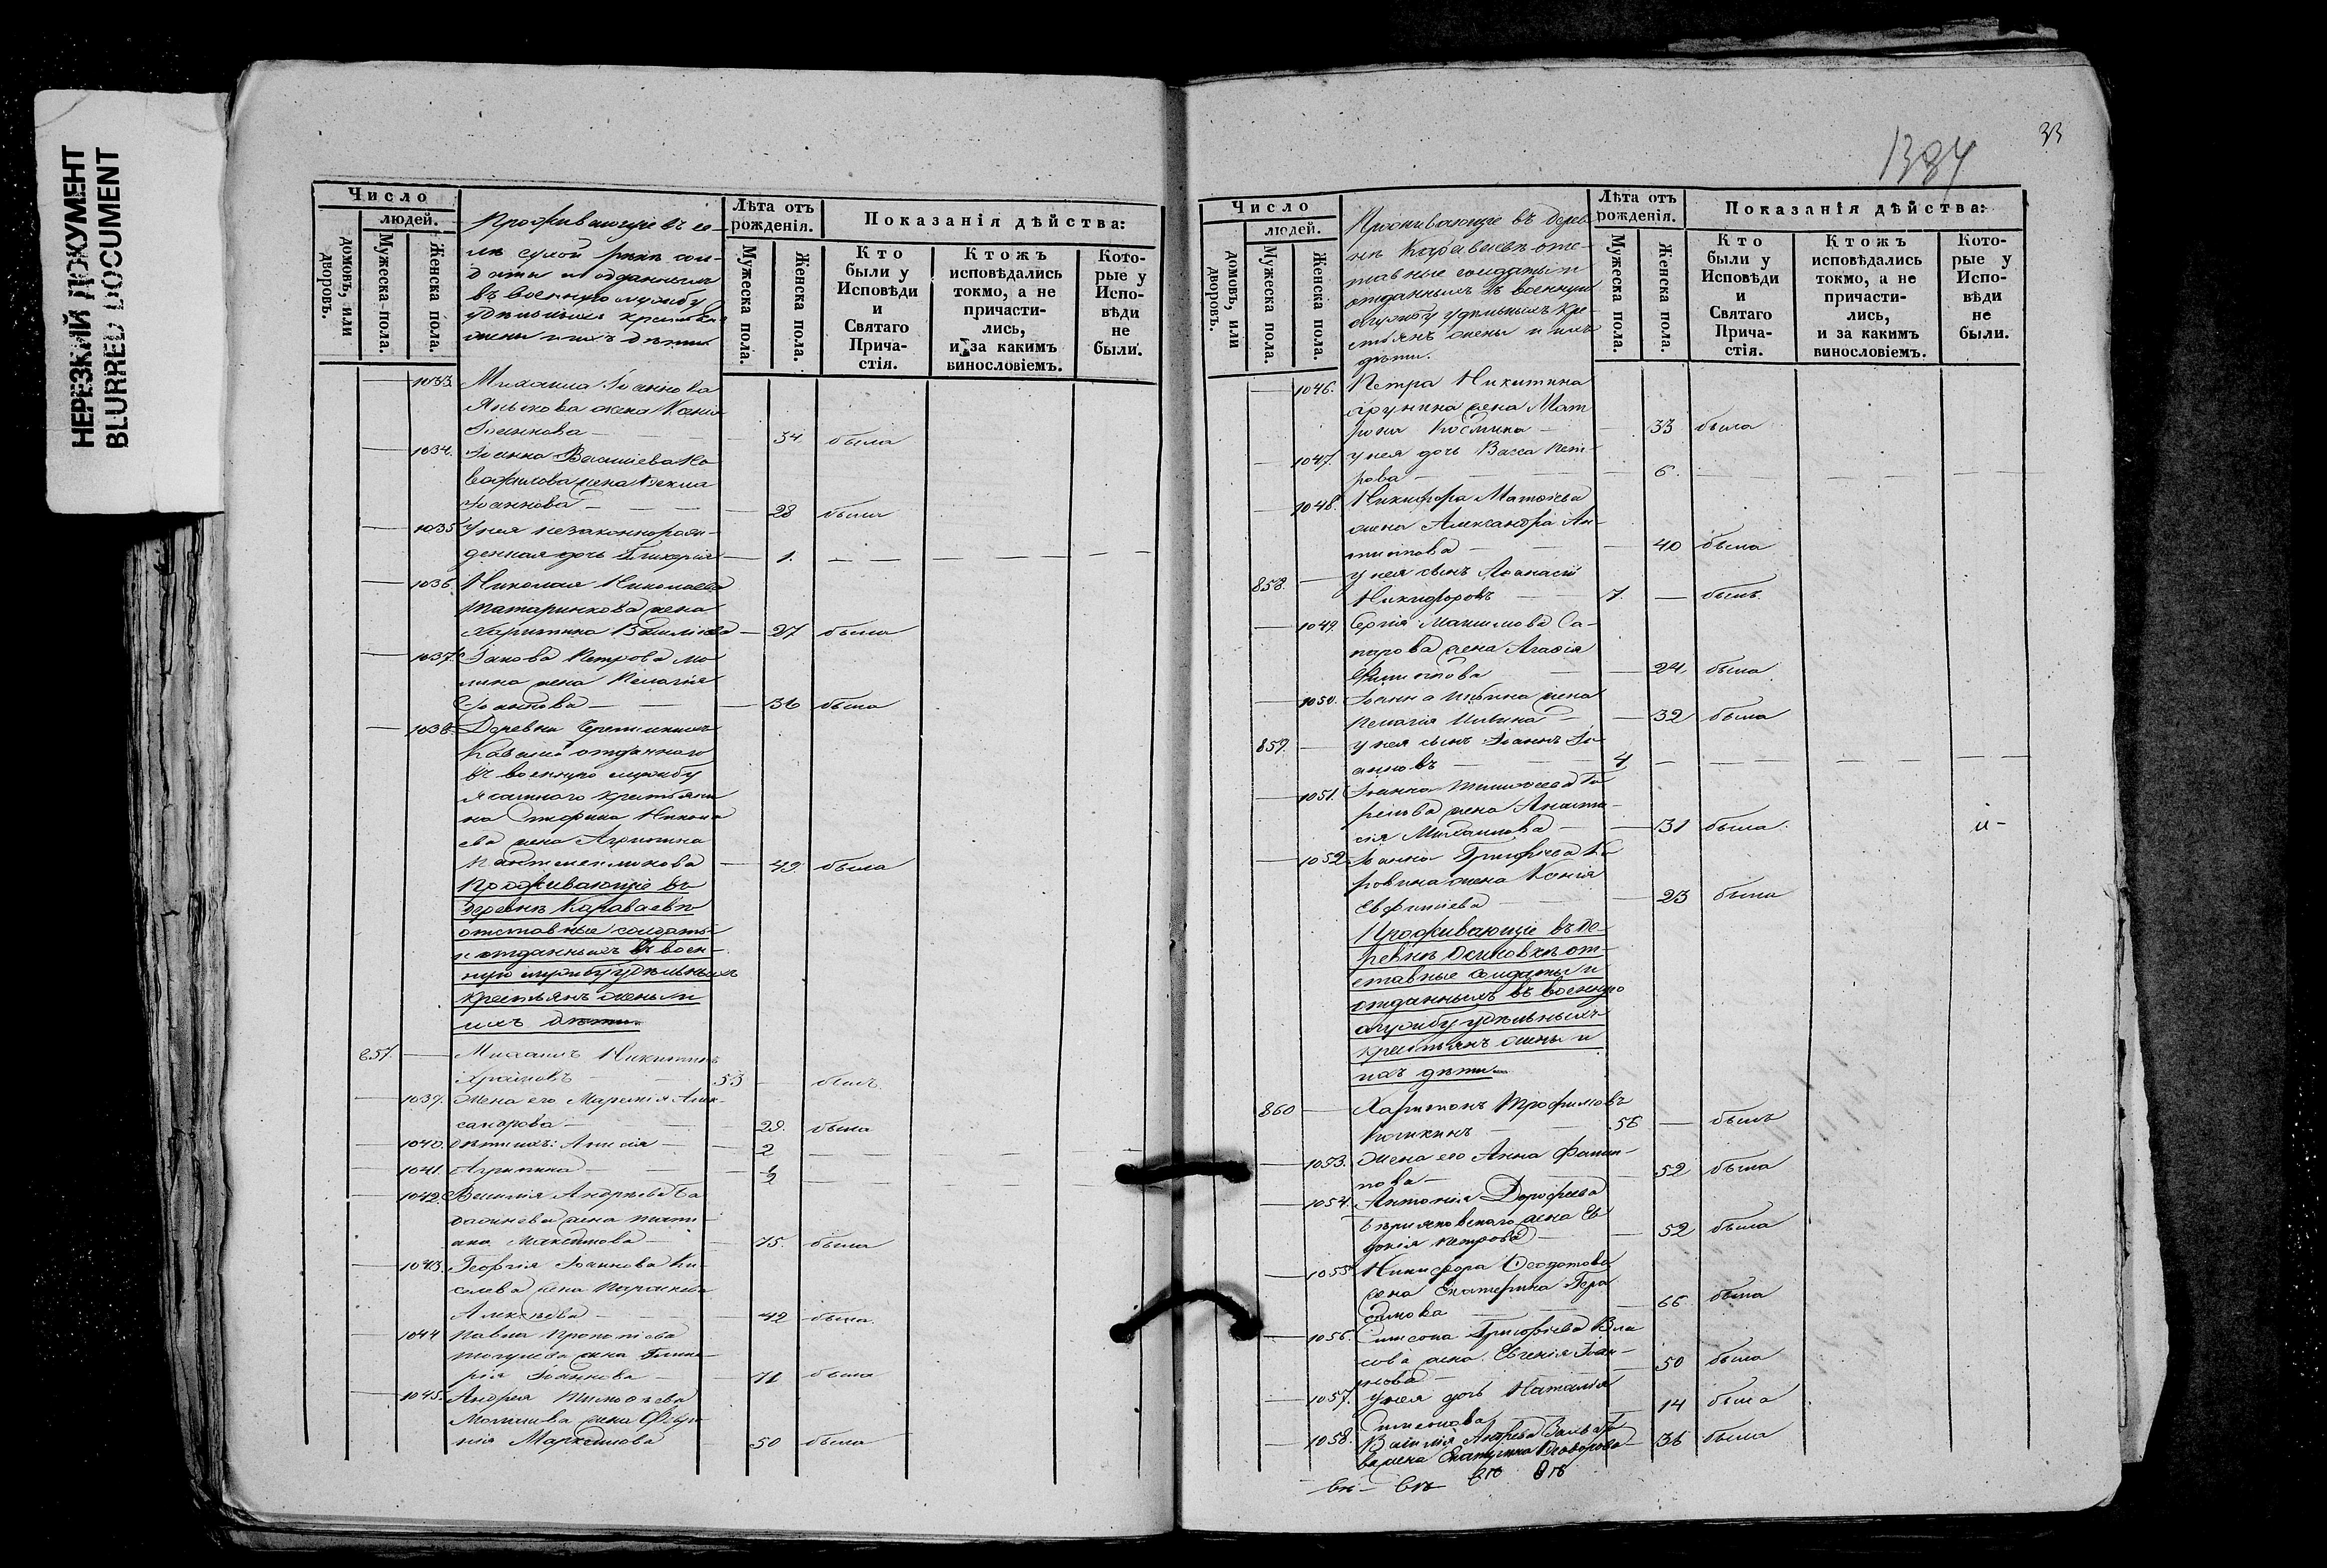 НЕРЕЗКИЙ ДОКУМЕНТ
BLURRED DOCUMENT
Число
людей.
домовъ, или дворовъ.
Мужеска пола.
Женска пола.
Проживающіе въ се-
лѣ сухой рѣкѣ сол-
даты и отданныхъ
въ военную службу
удѣльныхъ крестьянъ
жены и ихъ дѣти
Лѣта отъ рожденія.
Мужеска пола.
Женска пола.
Показанія дѣйства:
Кто были у Исповѣди и Святаго Причастія.
Ктожъ исповѣдались токмо, а не причастились, и за какимъ винословіемъ.
Которые у Исповѣди не были.
1033. Михаила Іоаннова
жена Ксенія
Іоаннова 34 была
1034. Іоанна Василіева
жена Ѳекла
Іоаннова 28 была
1035 У нея незаконнорож-
денная дочь Гликерія 1.
1036 Николая Николаева
Татаринкова жена
Харитина Василіева 27 была
1037. Іакова Петрова Мо-
лина жена Пелагія
Іоаннова 36 была
1038 Деревни
отданнаго
въ военную службу
ясашнаго крестьяни
на Никола
ева жена Агрипина
Пантелеимонова 49. была
Проживающіе въ
деревнѣ Караваевѣ
отставные солдаты
и отданныхъ въ воен-
ную службу удѣльныхъ
крестьянъ жены и
ихъ дѣти.
857. Михаилъ Никитинъ
Храмовъ 53 былъ.
1039. Жена его Алек-
сандрова 29. была
1040. Дѣти ихъ: Анисія 2
1041. Агрипина
1042. Василія Андреева Ба
жена Тати-
ана Максимова 75. была
1043. Георгія Іоаннова Ки-
селева жена Параскева
Алексѣева 42 была.
1044 Павла Прокопіева
жена Глике-
рія Іоаннова 71 была
1045. Андрея Тимоѳеева
жена Февро-
нія Маркелова 50 была
1384
33
Число
людей.
домовъ, или дворовъ.
Мужеска пола.
Женска пола.
Проживающіе въ дерев-
нѣ Караваевѣ отс-
тавные солдаты и
отданныхъ въ военную
службу удѣльныхъ кре-
стьянъ жены и ихъ
дѣти.
Лѣта отъ рожденія.
Мужеска пола.
Женска пола.
Показанія дѣйства:
Кто были у Исповѣди и Святаго Причастія.
Ктожъ исповѣдались токмо, а не причастились, и за какимъ винословіемъ.
Которые у Исповѣди не были.
1046. Петра Никитина
жена Мат
рона Космина 33 была
1047. У нея дочь Васса Пет-
рова 6.
1048. Никифора Матѳіева
жена Александра Ан-
типова 40 была
858. У нея сынъ Аѳанасій
Никифоровъ 7. былъ.
1049. Сергія Максимова Са-
жена Агаѳія
Филиппова 24. была
1050. Іоанна жена
Пелагія Ильина 32 была
859. У нея сынъ Іоаннъ Іо-
анновъ 4
1051. Іоанна Тимоѳеева Га
жена Анаста-
сія Михаилова 31 была.
1052. Іоанна Григорьева
жена Ксенія
Евфиміева 23 была
Проживающіе въ де-
ревнѣ Осиновкѣ от-
ставные солдаты и
отданныхъ въ военную
службу удѣльныхъ
крестьянъ жены и
ихъ дѣти.
860 Харитонъ Трофимовъ
56 былъ
1053. Жена его Анна Филип-
пова 52 была
1054. Антонія Дорофеева
жена Ев
докія Петрова 52 была
1055 Никифора Ѳеодотова
жена Екатерина Гера
симова 66 была
1056. Симеона Григорьева Вла
сова жена Евгенія Іоан-
нова 50 была
1057. У нея дочь Наталія
Симеонова 14 была
1058. Василія Андреева
жена Екатерина Ѳеодорова 36 была